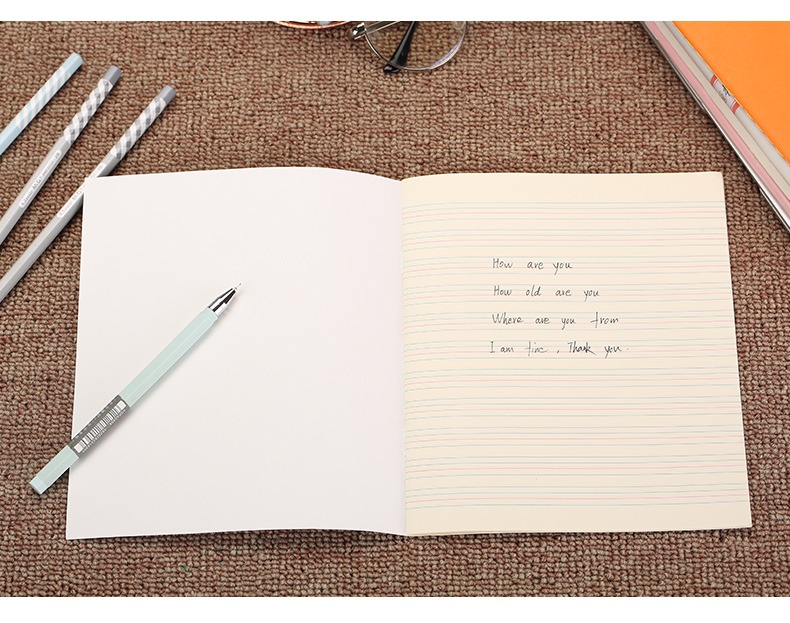 How are you
How old are you
Where are you from
I am fine, Thank you.